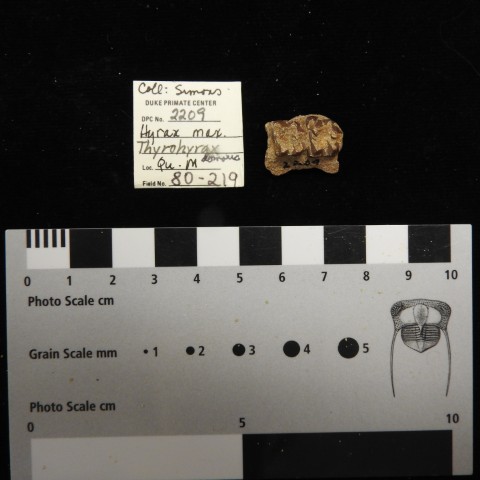 Coll: Simons
DUKE PRIMATE CENTER
DPC No. 2209
Hyrax max.
Thyrohyrax
domorictus
Loc. Qu. M
Field No. 80-219
2209
0 1 2 3 4 5 6 7 8 9 10
Photo Scale cm
Grain Scale mm 1 2 3 4 5
Photo Scale cm
0 5 10